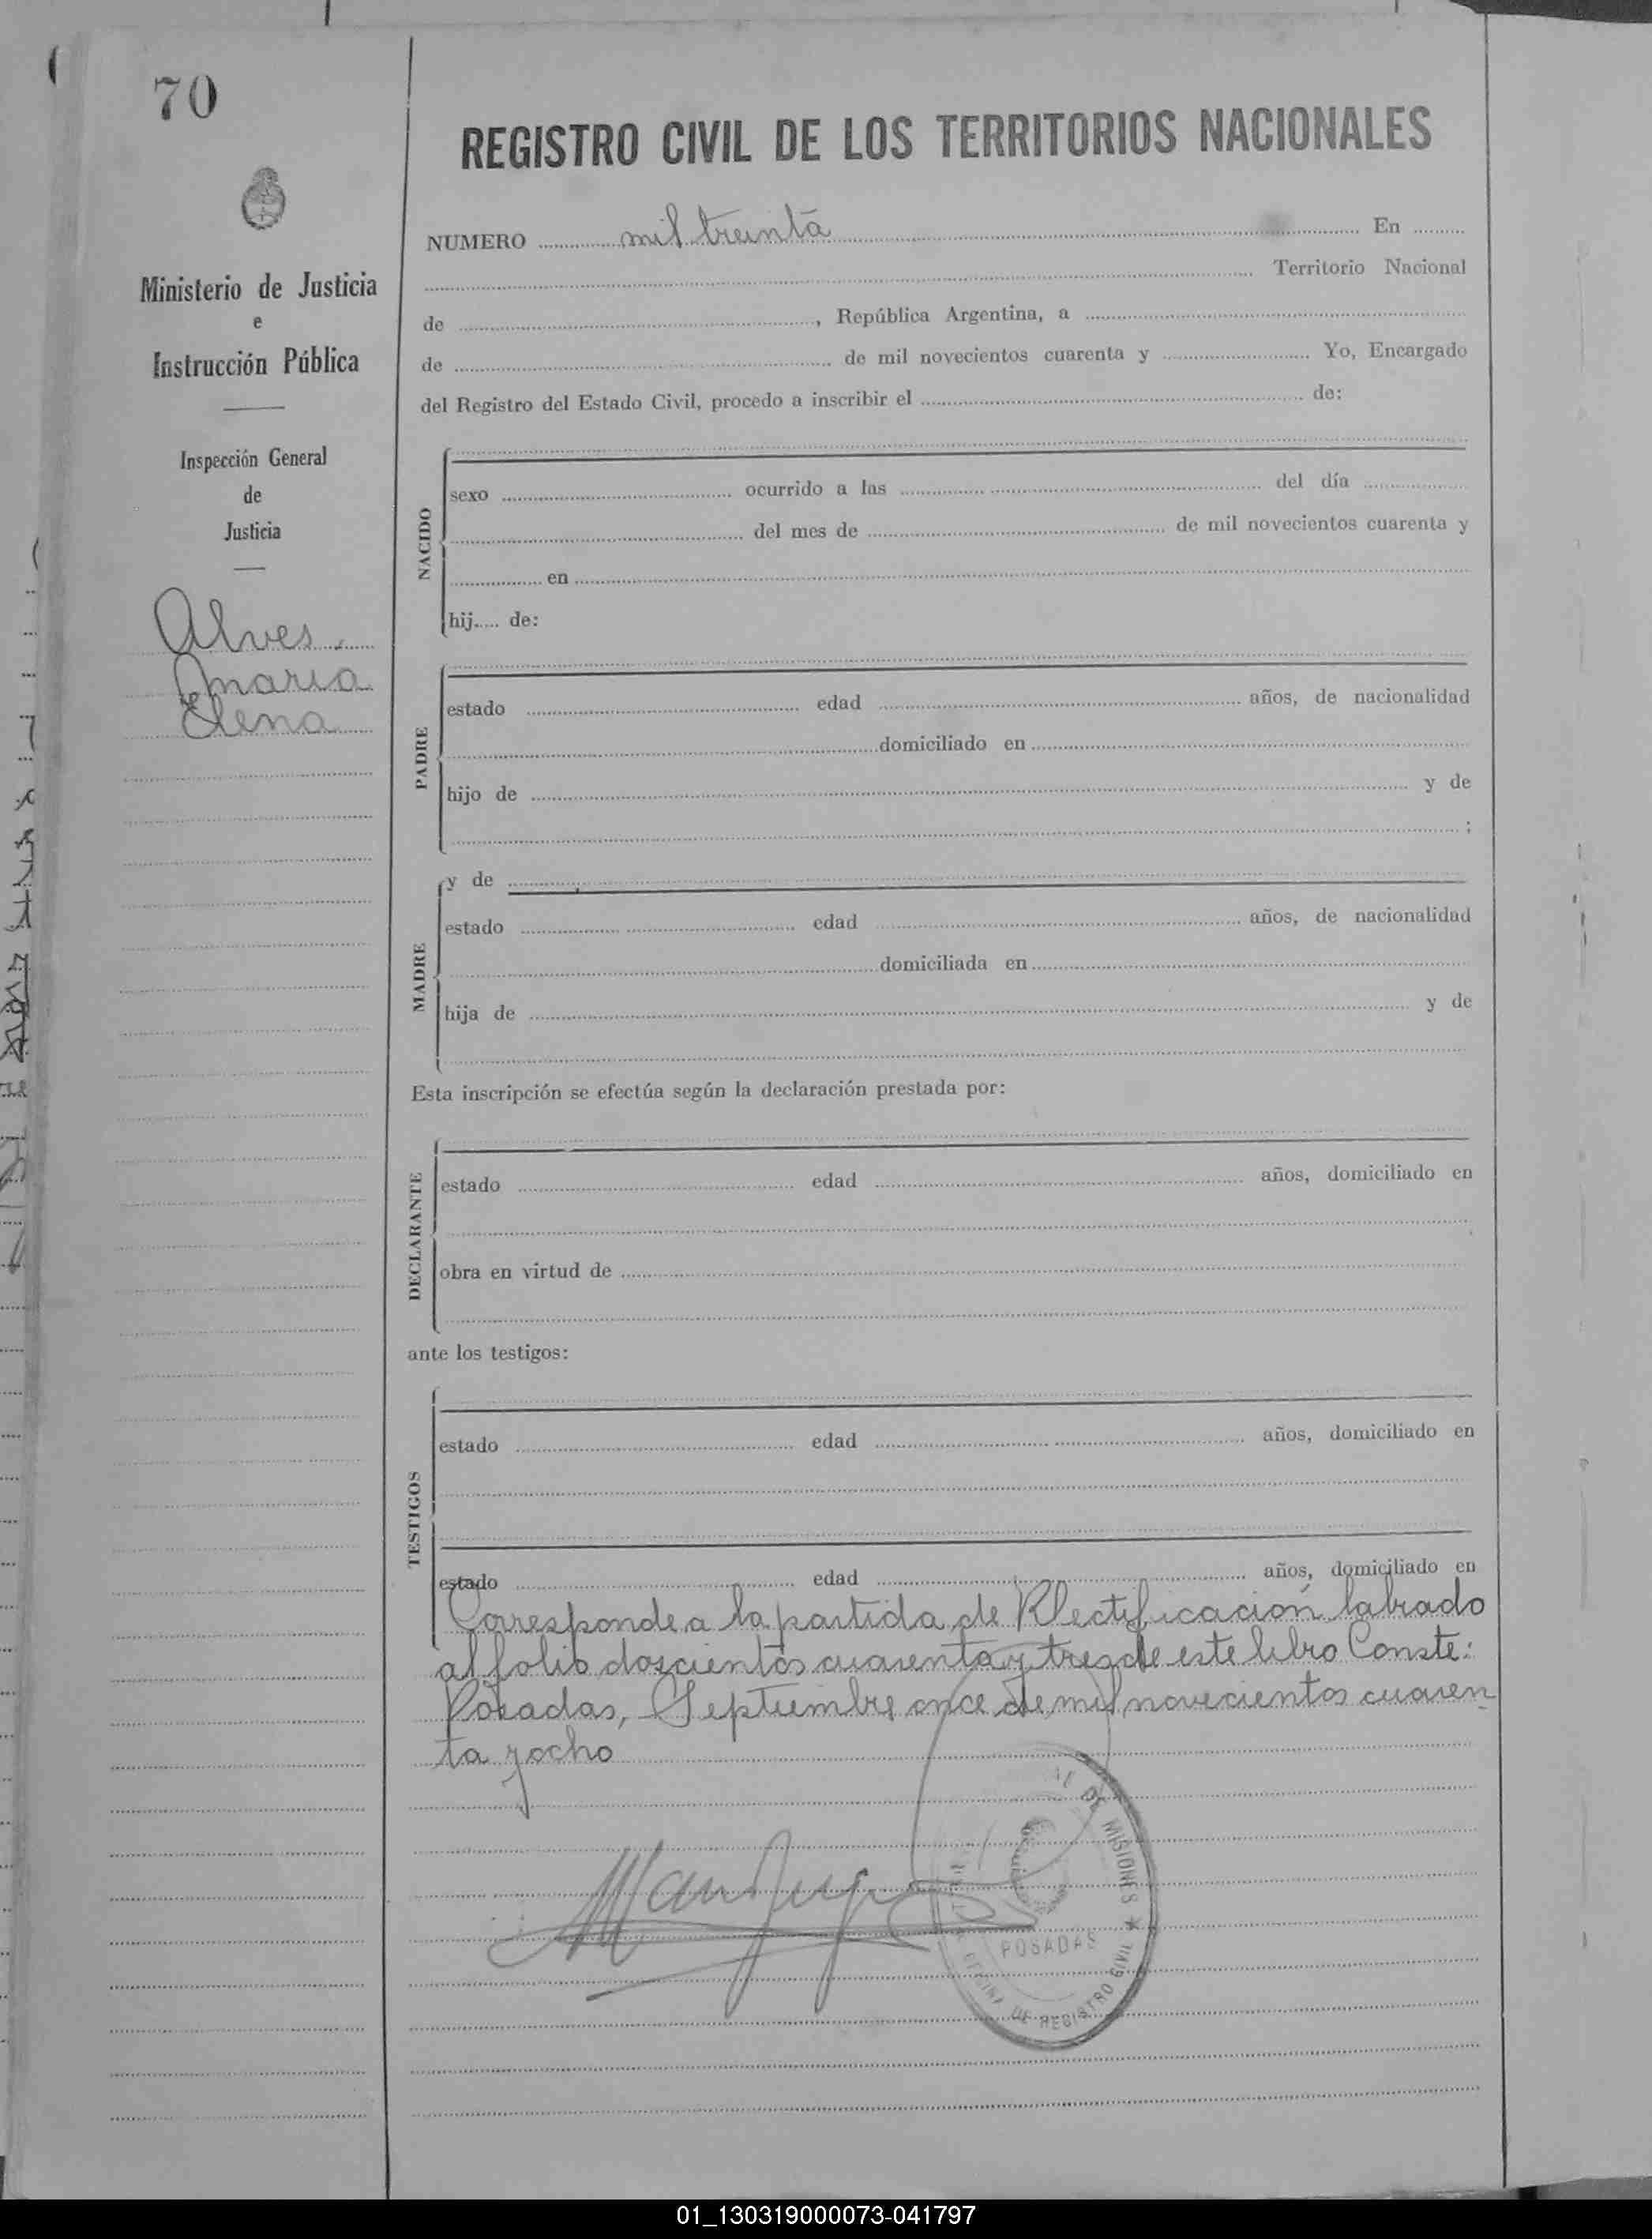 70
Ministerio de Justicia
e
Instrucción Pública
Inspección General
de
Justicia
Alves
Maria
Elena
REGISTRO CIVIL DE LOS TERRITORIOS NACIONALES
NUMERO mil treinta En
Territorio Nacional
de , República Argentina, a
de de mil novecientos cuarenta y Yo, Encargado
del Registro del Estado Civil, procedo a inscribir el de:
NACIDO
sexo ocurrido a las del día
del mes de de mil novecientos cuarenta y
en
hij.... de:
PADRE
estado edad años, de nacionalidad
domiciliado en
hijo de y de
;
MADRE
y de
estado edad años, de nacionalidad
domiciliada en
hija de y de
Esta inscripción se efectúa según la declaración prestada por:
DECLARANTE
estado edad años, domiciliado en
obra en virtud de
ante los testigos:
TESTIGOS
estado edad años, domiciliado en
estado edad años, domiciliado en
Corresponde a la partida de Rectificación labrado
al folio doscientos cuarenta y tres de este libro Conste:
Posadas, Septiembre once de mil novecientos cuaren
ta y ocho
DE MISIONES ★
POSADAS
OFICINA DE REGISTRO CIVIL
01_130319000073-041797